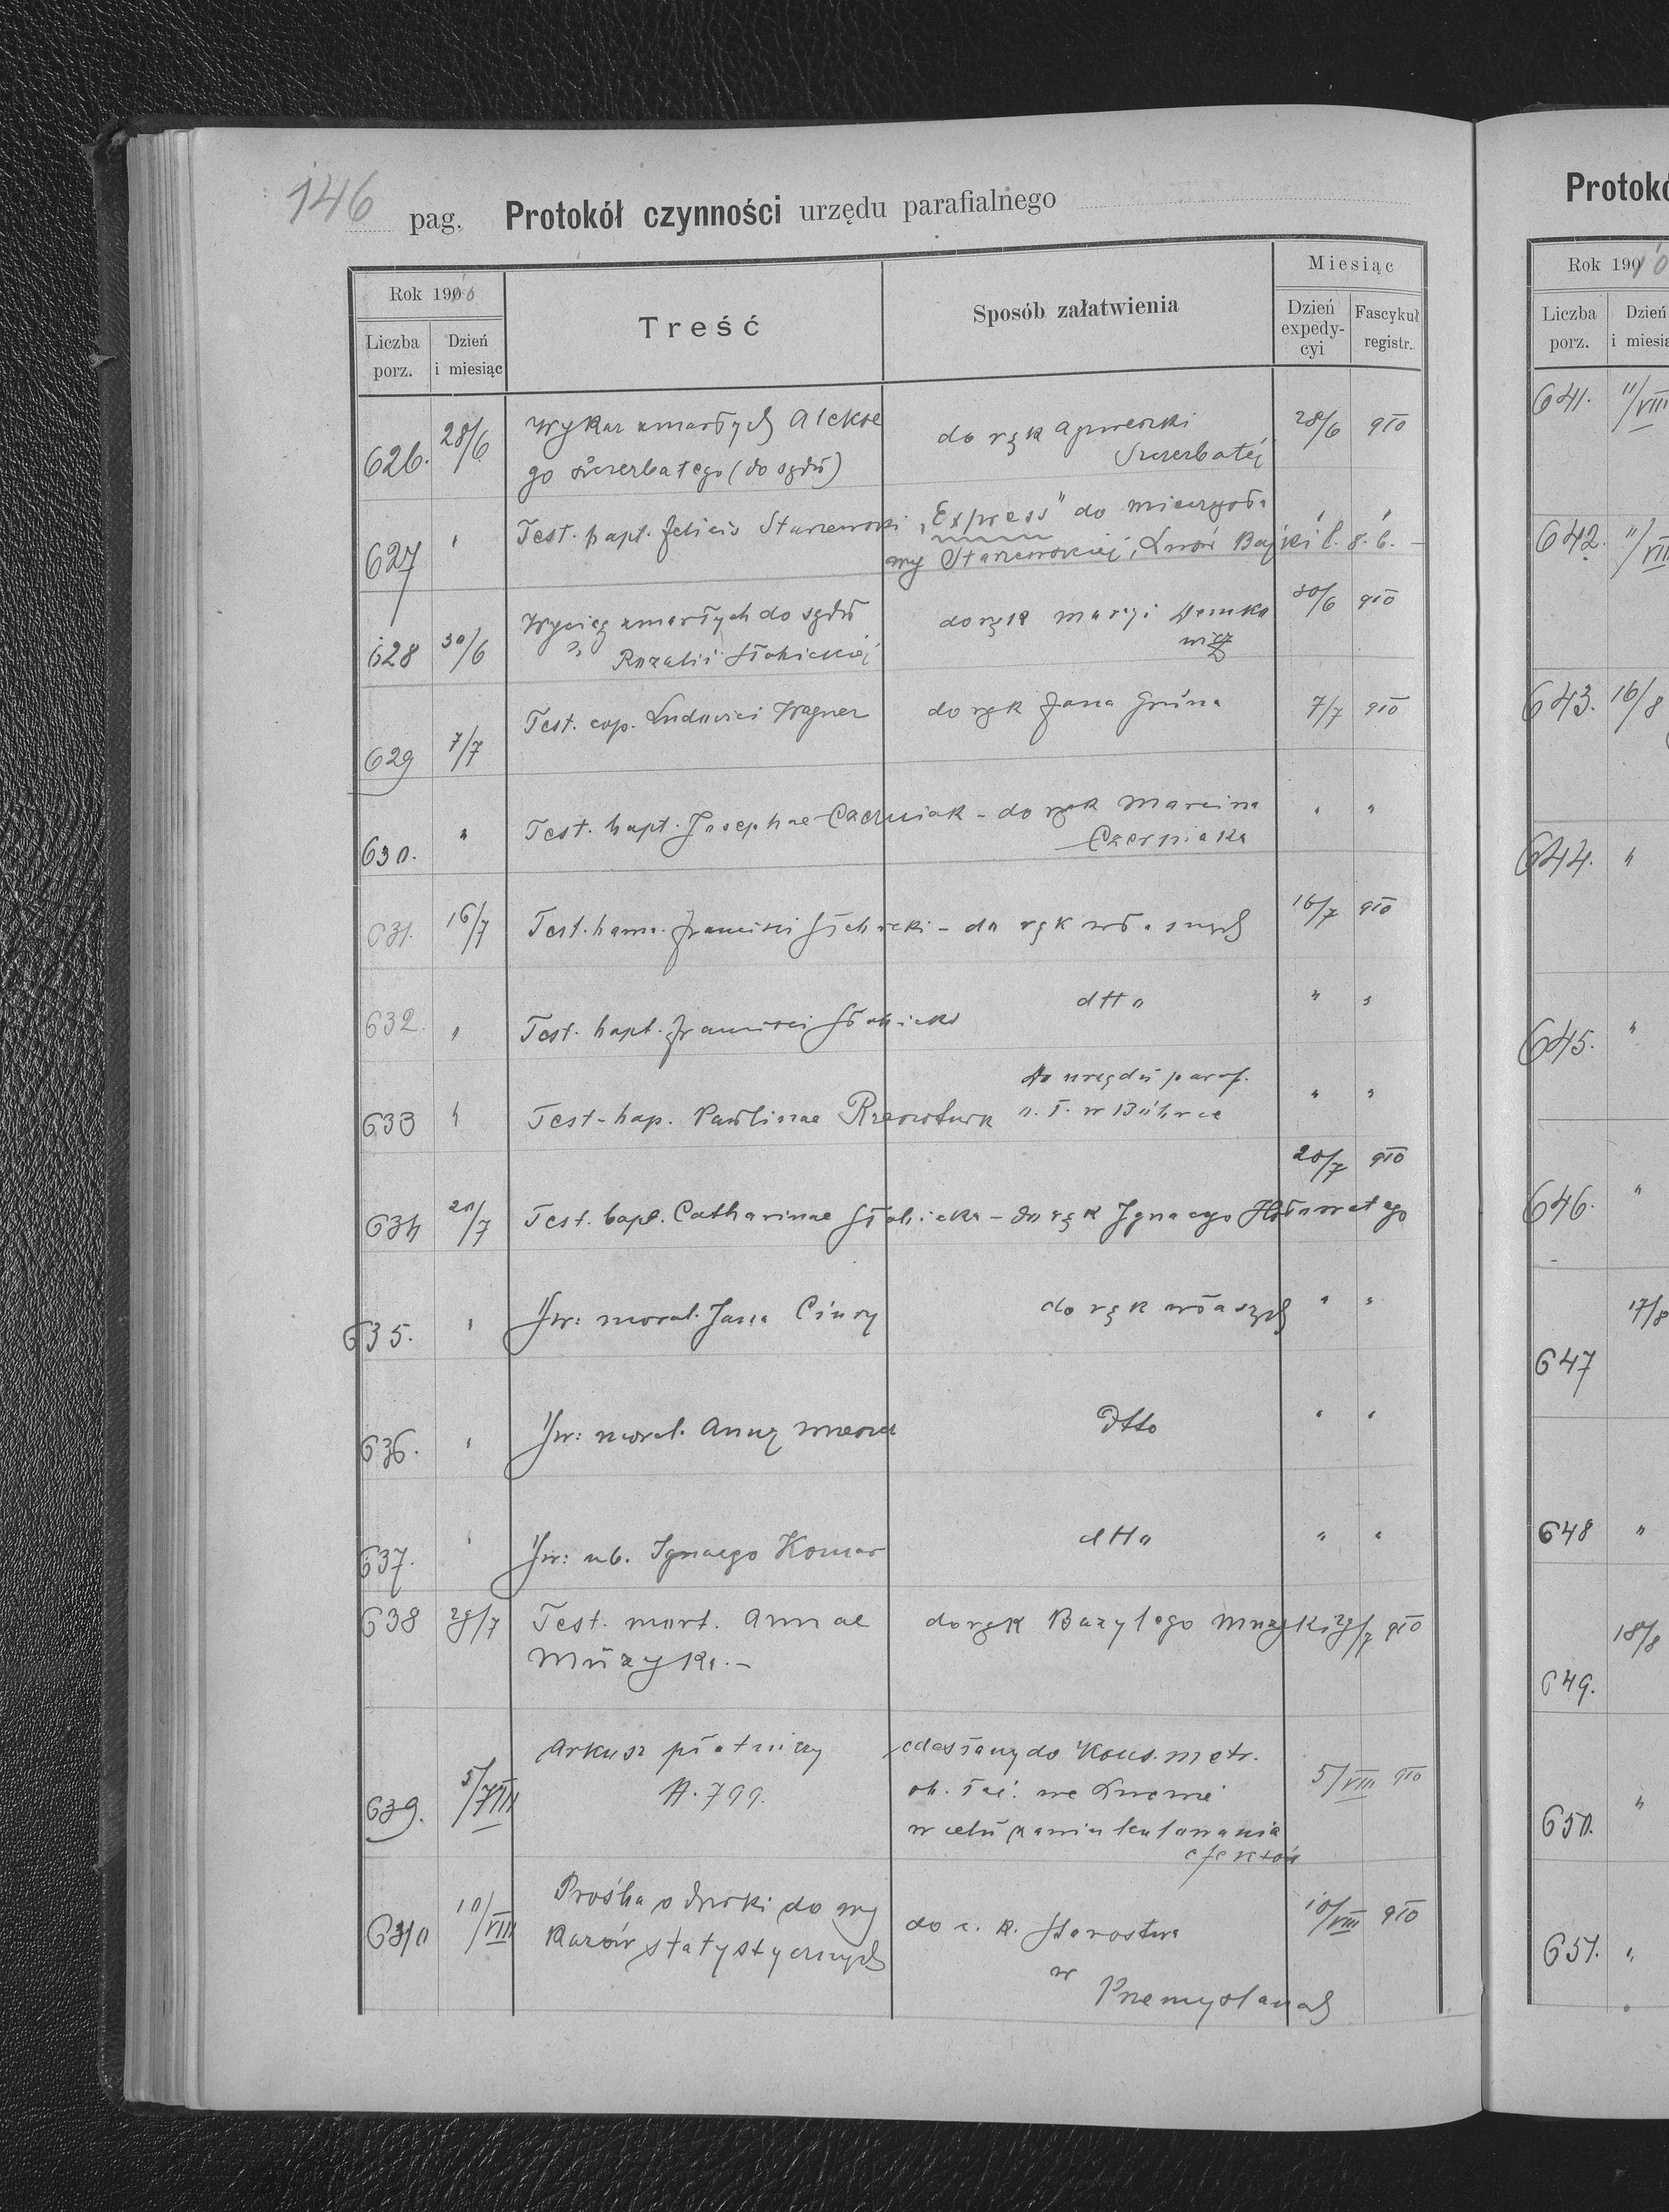 146 pag. Protokół czynności urzędu parafialnego
Rok 1910
Liczba porz.
Dzień i miesiąc
Treść
Sposób załatwienia
Miesiąc
Dzień expedycyi
Fascykuł registr.
626. 28/6 Wykaz zmarłych Alekse do rąk Agnieszki 28/6 910
go Szczerbatego (do sądu) Szczerbatéj
627 " Test. bapt. Felicis Starzewski „Express" do Mieczysła " "
wy Starzewskiej, Lwów Bajki l. 8. b. —
628 30/6 Wyciąg zmarłych do sądu do rąk Maryi Demko 30/6 910
Rozalii Słobickiéj wicz
629 7/7 Test. cop. Ludovici Wagner do rąk Jana Grüna 7/7 910
630. " Test. bapt. Josephae Czerniak - do rąk Marcina " "
Czerniaka
631. 16/7 Test. bann. Francisci Słobicki - do rąk własnych 16/7 910
632. " Test. bapt. Francisci Słobicki dtto " "
633 " Test. bap. Paulinae Do urzędu paraf. " "
o. ł. w Bóbrce
634 20/7 Test. bapt. Catharinae Słobicka - do rąk Ignacego Hołowatego 20/7 910
635. " Św: moral. Jana Ciury do rąk własnych " "
636. " Św: moral. Anny Dtto " "
637. " Św: ub. Ignacego Komar dtto " "
638 29/7 Test. mort. Annae do rąk Bazylego Muzyki 29/7 910
Muzyka. —
639. 5/VIII Arkusz płatniczy odesłany do Kons. metr. 5/VIII 910
A. 799. ob. łać. we Lwowie
w celu
efektów
640 10/VIII Prośba o druki do wy do c. k. Starostwa 10/VIII 910
kazów statystycznych w
Przemyślanach
Protokó
Rok 1910
Liczba porz.
Dzień i miesią
641. 11/VIII
642. 11/VIII
643. 16/8
644. "
645. "
646. "
647 17/8
648 "
649. 18/8
650. "
651. "